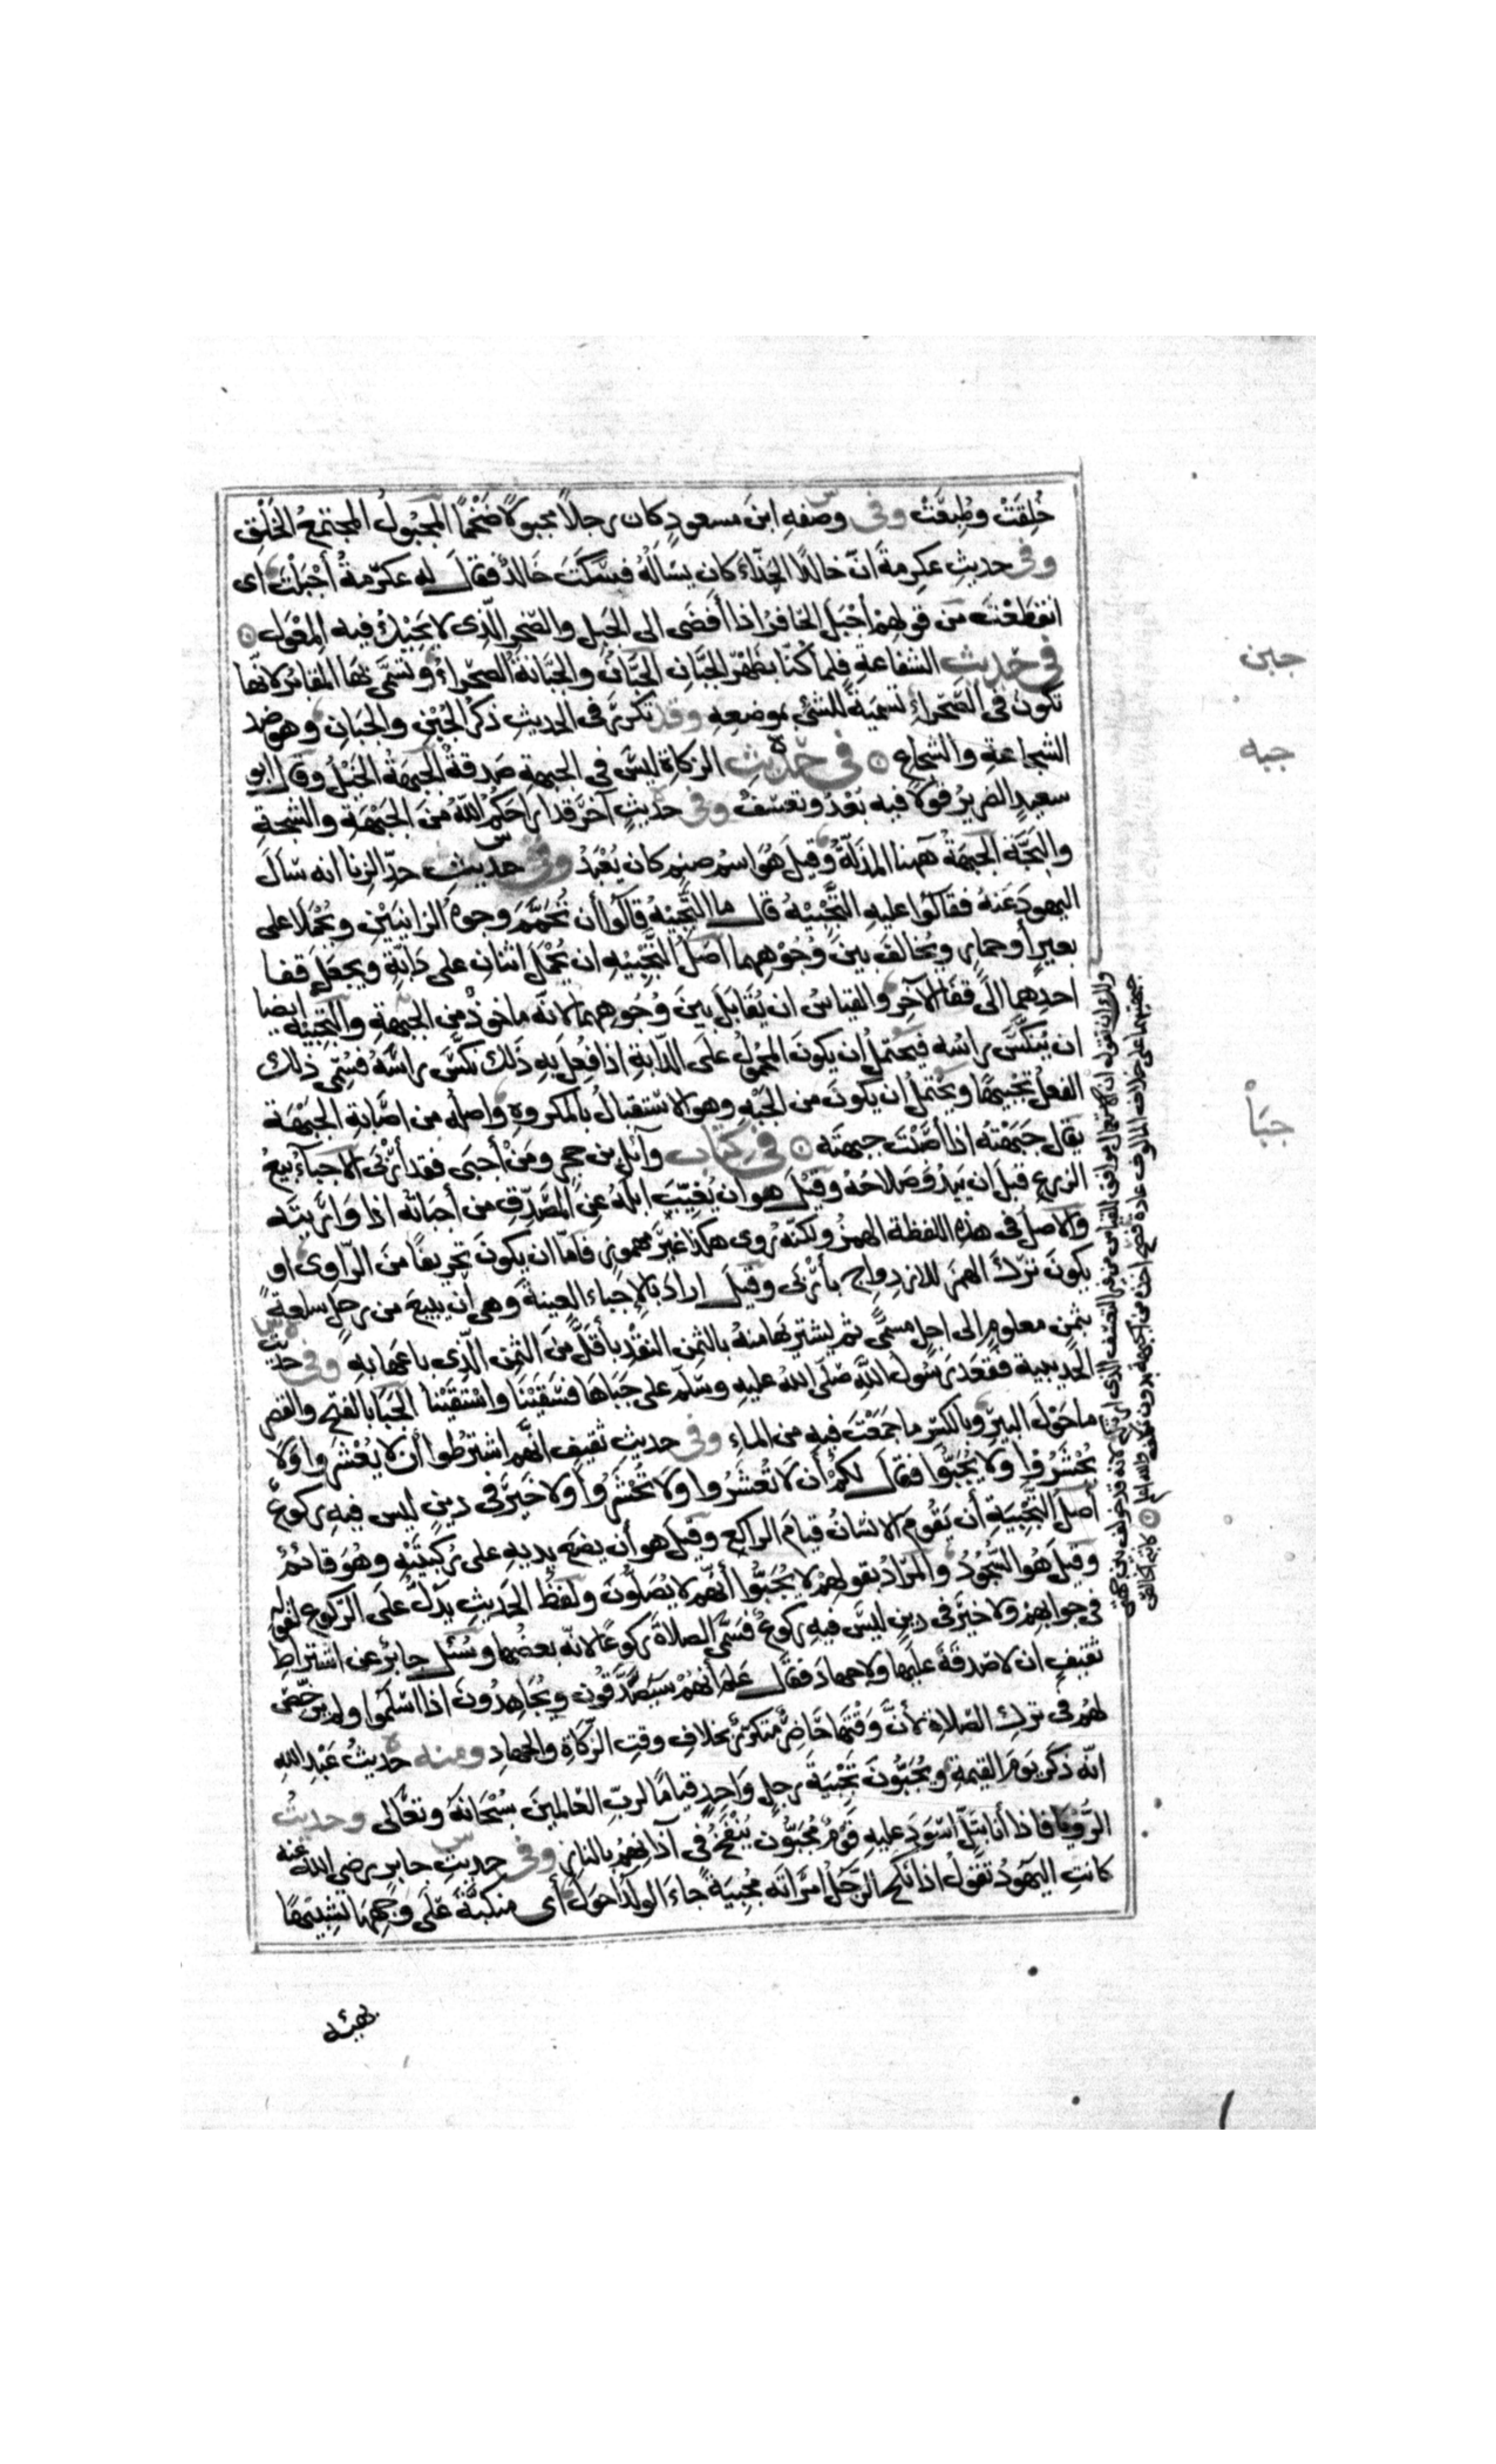 خُلِقَتْ وطُبِعَتْ وفى وصفه ابن مسعودٍ كان رجلاً مجبولاً ضَخْمًا المجْبُولُ المجتمعُ الخَلْقِ
وفى حديثِ عكرمةَ انّ خالدًا الحذّاءَ كان يسَالُهُ فسَكَتَ خَالدٌ فقالَ له عكرمةُ أجْبَلْتَ اى
انقطَعْتَ من قولهم أجْبَلَ الحافرُ اذا أفضَى الى الجَبلِ والصّخرِ الّذى لا يَحِيْكُ فيه المِعْوَلُ
فى حديثِ الشفاعةِ فلما كُنّا بظَهْرِ الجَبَّانِ الجَبَّانُ والجَبّانَةُ الصّحراءُ وتسَمَّى بهَا المقابرُ لانّها
تكونُ فى الصَّحراءِ تسْمِيَةً للشئِ بموضعِهِ وقد تكررَ فى الحديثِ ذكرُ الجُبْنِ والجَبَانِ وهو ضد
الشجاعةِ والشجاعِ فى حَدِيثِ الزكاةِ ليسَ فى الجبهةِ صَدقةٌ الجبهَةُ الخَيْلُ وقال ابو
سعيدٍ الضريرُ قولاً فيه بُعْدٌ وتعسّفٌ وفى حديثٍ آخرَ قد اراحَكُمُ اللهُ منَ الجَبْهَةِ والسّجّةِ
والبَجّةِ الجبهَةُ ههنا المذلّةُ وقيلَ هُوَ اسْمُ صنمٍ كان يُعْبَدُ وفى حديثِ حدِّ الزنا انه سَالَ
اليهودَ عَنهُ فقالُوا عليهِ التَّجْبِيْهُ قال ما التّجْبيهُ قالُوا أن تُحَمَّمَ وجوهُ الزانيَيْنِ ويُحْمَلَا على
بعيرٍ أو حمارٍ ويُخالَفَ بينَ وُجُوْهِهِما اصلُ التَّجْبِيْهِ ان يُحْمَلَ اثنانِ على دَابّةٍ ويجعَلَ قفا
احدِهما الَى قفَا الآخرِ والقياسُ ان يُقَابَلَ بينَ وُجُوهِهِما لانّه ماخوذٌ من الجَبهةِ والتّجْبِيْهُ ايضا
ان يُنَكَّسَ راسُه فيَحتملُ ان يكونَ المحْمُولُ على الدّابّةِ اذا فُعِلَ بِهِ ذلك نكّسَ راسَهُ فسُمّى ذلك
الفعلُ تَجْبِيْهًا ويَحتملُ ان يكونَ من الجَبْهِ وهو الاستقبالُ بالمكروهِ واصلُه من اصَابةِ الجبْهَةِ
يقال جَبَهْتُه اذا أصَبْتَ جبهتَه فى كتاب وآئل بن حجرٍ ومَنْ أجبَى فقد أرْبَى الاجباءُ بيعُ
الزرعِ قبلَ ان يَبْدُو صلاحُهُ وقيْلَ هو ان يُغَيِّبَ ابلَهُ عنِ المُصَدِّقِ من أجبأتُه اذا وَارَيتَه
والاصلُ فى هذه اللفظةِ الهمزُ ولكنّه رُوِىَ هكذا غيرَ مهموزٍ فامّا ان يكونَ تحريفًا منَ الرّاوى او
يكونَ تركَ الهمزَ للازدواجِ بأرْبَى وقيلَ ارادَ بالاِجْبَاءِ العينةَ وهى ان يبيعَ من رجلٍ سلعةً
بثمنٍ معلومٍ الى اجلٍ مسمًّى ثم يشتريَها منهُ بالثمنِ النقدِ باقلَّ مِنَ الثمنِ الّذى باعَها بهِ وفى حديث
الحُديبيةِ فقَعَدَ رسُولُ اللهِ صلّى اللهُ عليهِ وسَلّم على جَبَاهَا فسَقَيْنَا واسْتَقَيْنا الجَبَا بالفتحِ والقصرِ
ما حَوْلَ البيرِ وبالكسرِ ما جمعْتَ فيه من الماءِ وفى حديثِ ثقيفٍ انّهم اشترطُوا أن لا يُعْشَرُوا وَلَا
يُحْشَرُوا ولا يُجَبُّوا فقالَ لكُمْ أن لا تُعشَرُوا ولا تُحْشَرُوا ولا خيرَ فى دينٍ ليس فيهِ ركوعٌ
أصلُ التّجْبِيَةِ أن يَقُومَ الانسانُ قيامَ الراكعِ وقيلَ هو أن يضعَ يديهِ على رُكبتَيْهِ وهُوَ قائمٌ
وقيلَ هُوَ السُّجُودُ والمرَادُ بقولِهمْ لا يُجَبُّوا أنّهم لا يُصلُّونَ ولفظُ الحديثِ يدلُّ على الركوعِ لقوله
فى جوابهِمْ ولا خيرَ فى دينٍ ليسَ فيهِ ركوعٌ فسمّى الصلاةَ ركوعًا لانّه بعضُها وسُئل جابرٌ عن اشتراطِ
ثقيفٍ ان لا صدقَةَ عليها ولا جهادَ فقالَ عَلِمَ أنهُمْ سيَصَّدَّقُون ويُجاهِدُونَ اذا اسْلَمُوا ولم يرخّصْ
لهُم فى تركِ الصّلاةِ لأنَّ وَقتَها حَاضِرٌ متكرّرٌ بخلافِ وقتِ الزّكاةِ والجهادِ ومنه حديثُ عَبْدِ اللهِ
انّه ذكرَ يومَ القيمةِ ويُجَبُّونَ تَجْبِيَةَ رجلٍ وَاحدٍ قيامًا لربِّ العٰلمينَ سُبْحَانَهُ وتعَالَى وحديثُ
الرُّؤيا فاذا أنا بتلٍّ اسْوَدَ عليهِ قوْمٌ مُجَبُّون يُنْفَخُ فى آذانِهِمْ بالنارِ وفى حديثِ جابرٍ رضى الله عنه
كانتِ اليهُودُ تقُولُ اذا نكحَ الرّجلُ امرَأتَه مُجَبِّيَةً جاءَ الولدُ احوَلَ أى منكبَّةً على وَجهِهَا تشبيهًا
بهيئه
جبن
جبه
جبأ